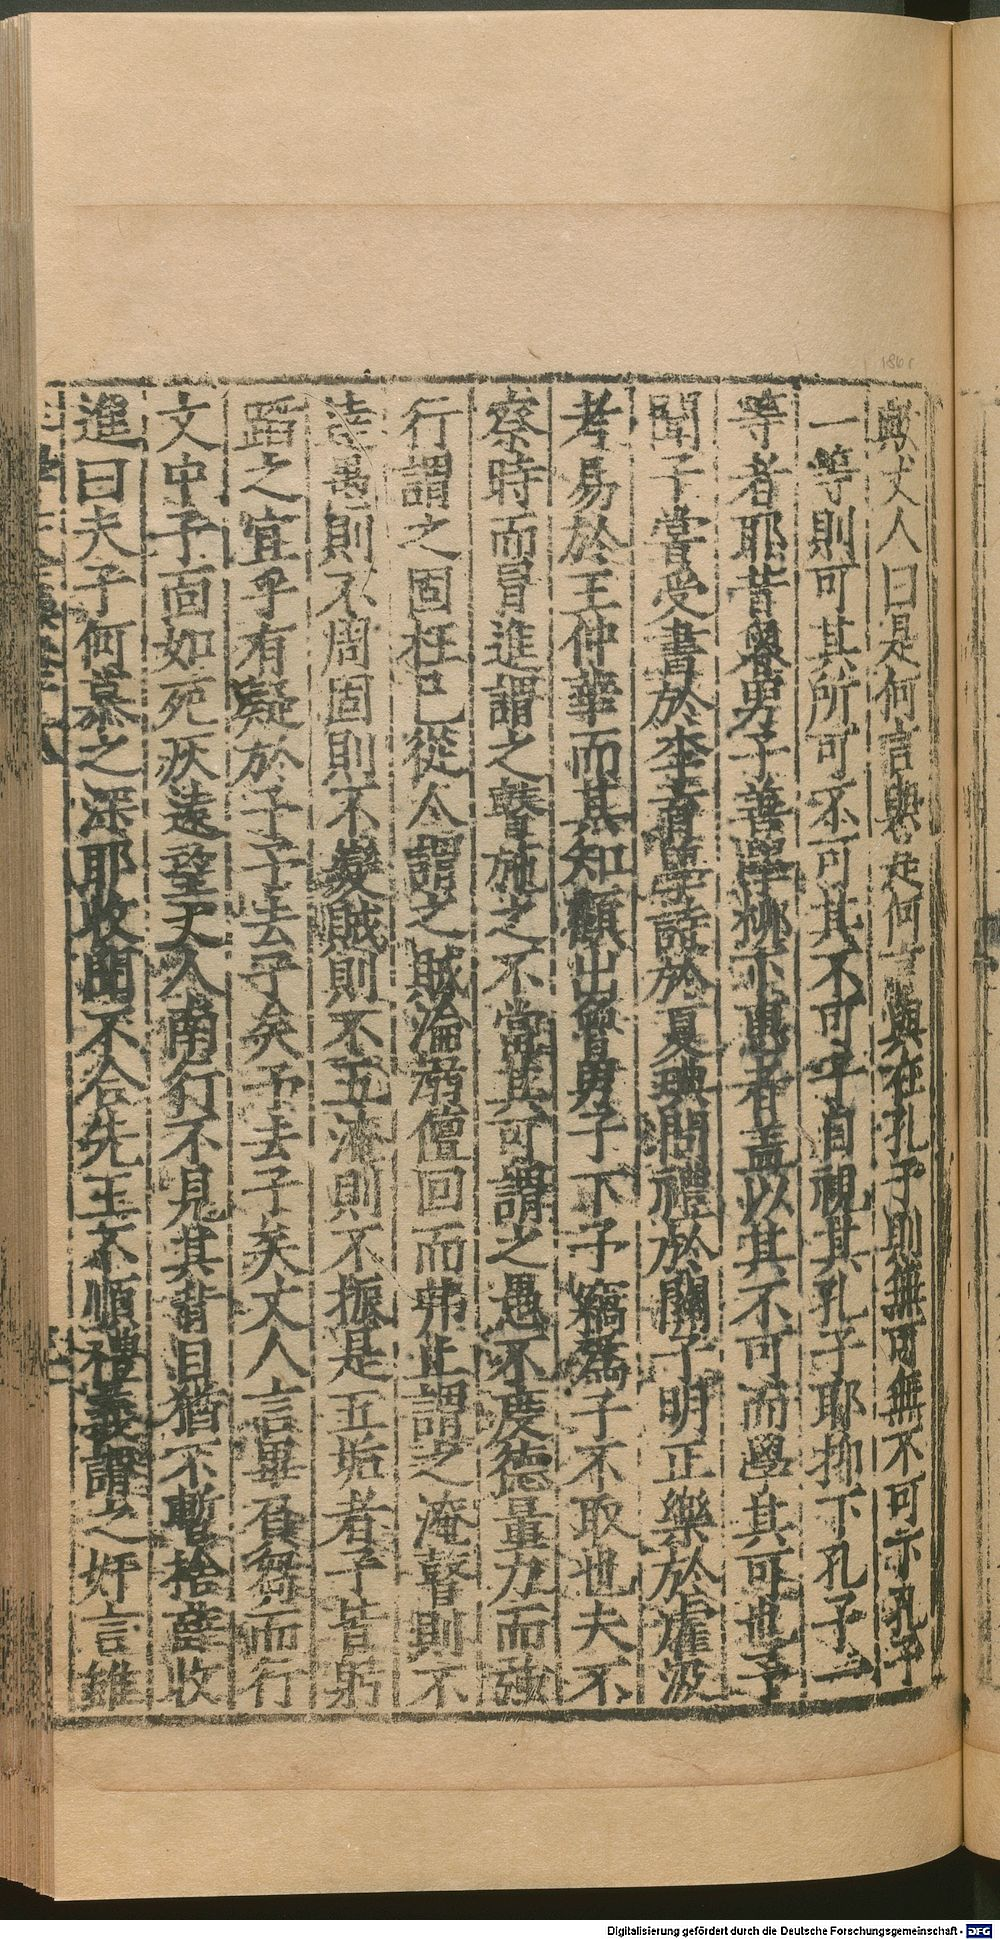 歟丈人曰是何言歟是何言歟在孔子則無可無不可亦孔子
一等則可其所可不可其不可子自視其孔子耶抑下孔子一
等者耶昔魯男子善學柳下惠者盖以其不可而學其可也予
聞子嘗受書於李育學詩於夏琠問禮於關子明正樂於霍汲
考易於王仲華而其知顧出魯男子下予竊為子不取也夫不
察時而冒進謂之瞽施之不當其可謂之愚不度德量力而強
行謂之固枉己從人謂之賊淪溺僧回而弗止謂之淹瞽則不
逵愚則不周固則不變賊則不五淹則不振是五垢者子皆躬
蹈之宜乎有疑於子予去子矣予去子矣丈人言畢負芻而行
文中子面如死灰遠望丈人南行不見其背目猶不暫捨薛收
進曰夫子何慕之深耶收聞不合先王不順禮義謂之奸言雖
Digitalisierung gefördert durch die Deutsche Forschungsgemeinschaft - DFG